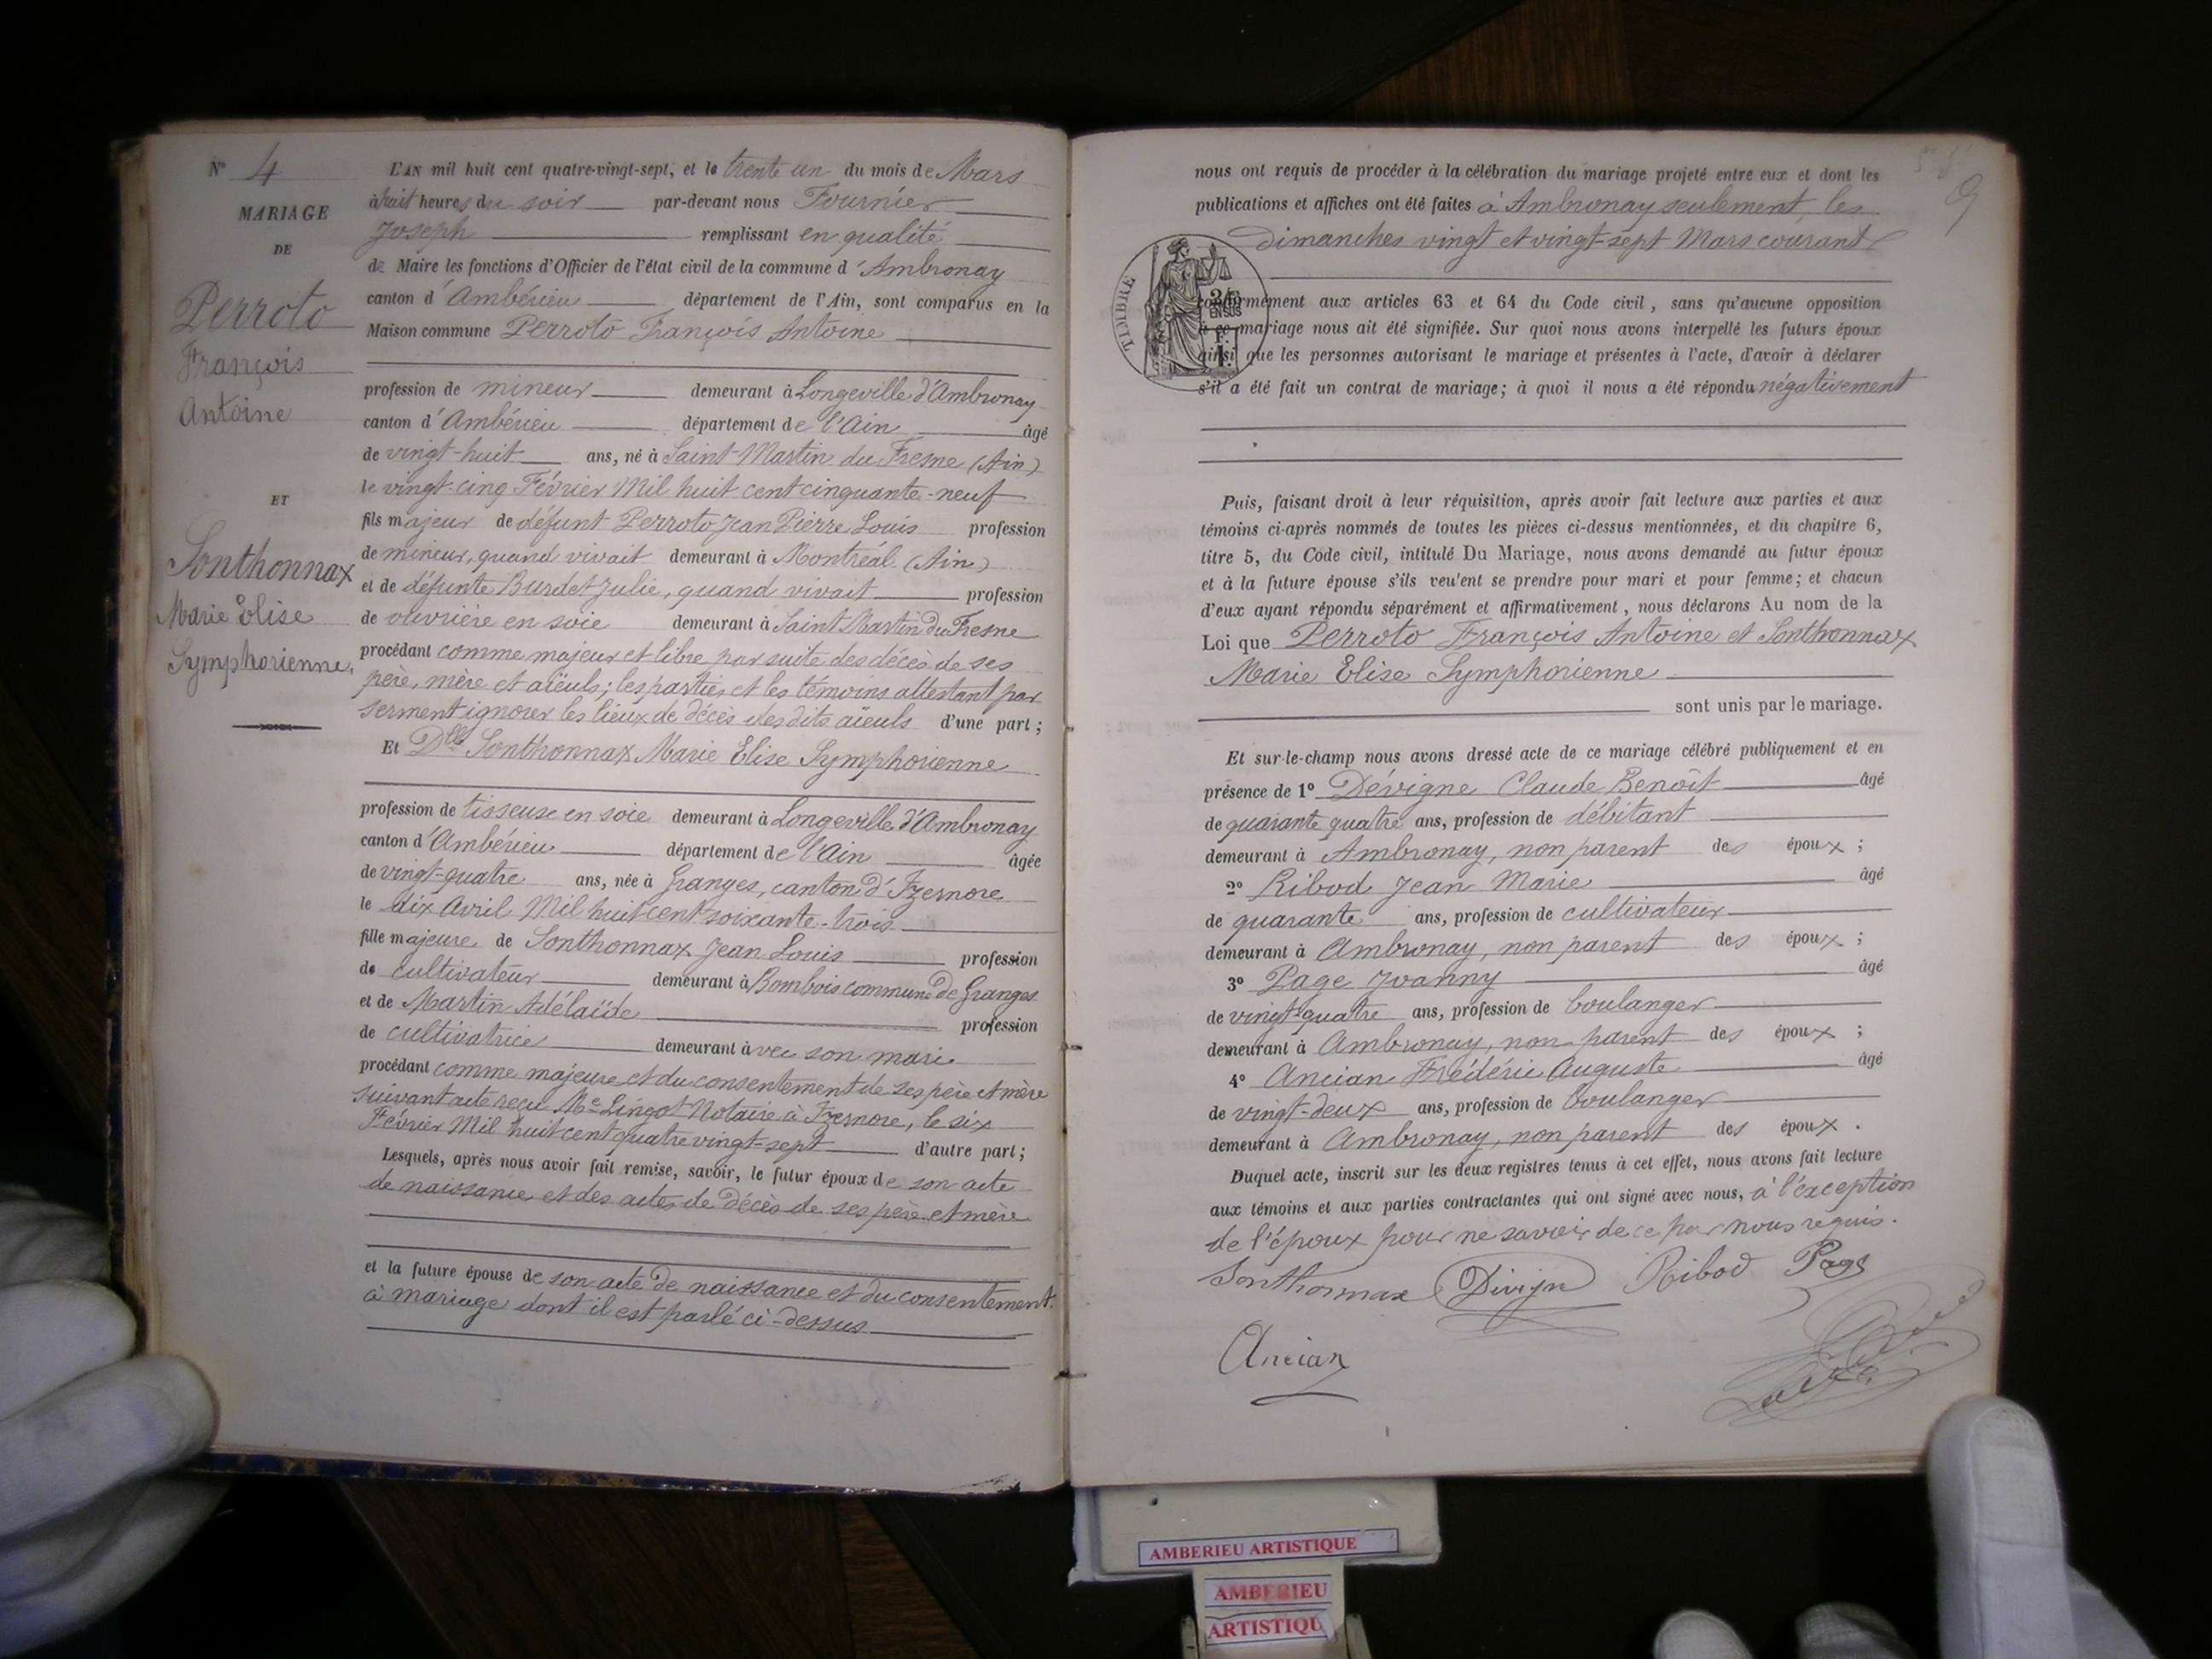 N° 4
MARIAGE
DE
Perroto
François
Antoine
ET
Sonthonnax
Marie Elise
Symphorienne.
L'AN mil huit cent quatre-vingt-sept, et le trente un du mois de Mars
à huit heures du soir par-devant nous Fournier
Joseph remplissant en qualité
de Maire les fonctions d'Officier de l'état civil de la commune d'Ambronay
canton d'Ambérieu département de l'Ain, sont comparus en la
Maison commune Perroto François Antoine
profession de mineur demeurant à Longeville d'Ambronay
canton d'Ambérieu département de l'Ain âgé
de vingt-huit ans, né à Saint-Martin du Fresne (Ain)
le vingt-cinq Février Mil huit cent cinquante-neuf
fils majeur de défunt Perroto Jean Pierre Louis profession
de mineur, quand vivait demeurant à Montréal (Ain)
et de défunte Burdet Julie, quand vivait profession
de ouvrière en soie demeurant à Saint Martin du Fresne
procédant comme majeur et libre par suite des décès de ses
père, mère et aïeuls; les parties et les témoins attestant par
serment ignorer les lieux de décès des dits aïeuls d'une part;
Et Dlle Sonthonnax Marie Elise Symphorienne
profession de tisseuse en soie demeurant à Longeville d'Ambronay
canton d'Ambérieu département de l'Ain âgée
de vingt-quatre ans, née à Granges, canton d'Izernore
le dix Avril Mil huit cent soixante-trois
fille majeure de Sonthonnax Jean Louis profession
de cultivateur demeurant à Bombois commune de Granges
et de Martin Adélaïde profession
de cultivatrice demeurant avec son mari
procédant comme majeure et du consentement de ses père et mère
suivant acte reçu Me Lingot Notaire à Izernore, le six
Février Mil huit cent quatre vingt-sept d'autre part;
Lesquels, après nous avoir fait remise, savoir, le futur époux de son acte
de naissance et des actes de décès de ses père et mère
et la future épouse de son acte de naissance et du consentement
à mariage dont il est parlé ci-dessus
9
nous ont requis de procéder à la célébration du mariage projeté entre eux et dont les
publications et affiches ont été faites à Ambronay seulement, les
dimanches vingt et vingt-sept Mars courant
TIMBRE
EN SUS
conformément aux articles 63 et 64 du Code civil, sans qu'aucune opposition
à ce mariage nous ait été signifiée. Sur quoi nous avons interpellé les futurs époux
ainsi que les personnes autorisant le mariage et présentes à l'acte, d'avoir à déclarer
s'il a été fait un contrat de mariage; à quoi il nous a été répondu négativement
Puis, faisant droit à leur réquisition, après avoir fait lecture aux parties et aux
témoins ci-après nommés de toutes les pièces ci-dessus mentionnées, et du chapitre 6,
titre 5, du Code civil, intitulé Du Mariage, nous avons demandé au futur époux
et à la future épouse s'ils veulent se prendre pour mari et pour femme; et chacun
d'eux ayant répondu séparément et affirmativement, nous déclarons Au nom de la
Loi que Perroto François Antoine et Sonthonnax
Marie Elise Symphorienne
sont unis par le mariage.
Et sur-le-champ nous avons dressé acte de ce mariage célébré publiquement et en
présence de 1° Dévigne Claude Benoît âgé
de quarante quatre ans, profession de débitant
demeurant à Ambronay, non parent des époux;
2° Ribod Jean Marie âgé
de quarante ans, profession de cultivateur
demeurant à Ambronay, non parent des époux;
3° Page Joanny âgé
de vingt-quatre ans, profession de boulanger
demeurant à Ambronay, non parent des époux;
4° Ancian Frédéric Auguste âgé
de vingt-deux ans, profession de boulanger
demeurant à Ambronay, non parent des époux.
Duquel acte, inscrit sur les deux registres tenus à cet effet, nous avons fait lecture
aux témoins et aux parties contractantes qui ont signé avec nous, à l'exception
de l'époux pour ne savoir de ce par nous requis.
Sonthonnax Divign Ribod Page
Ancian
AMBERIEU ARTISTIQUE
AMBERIEU
ARTISTIQU